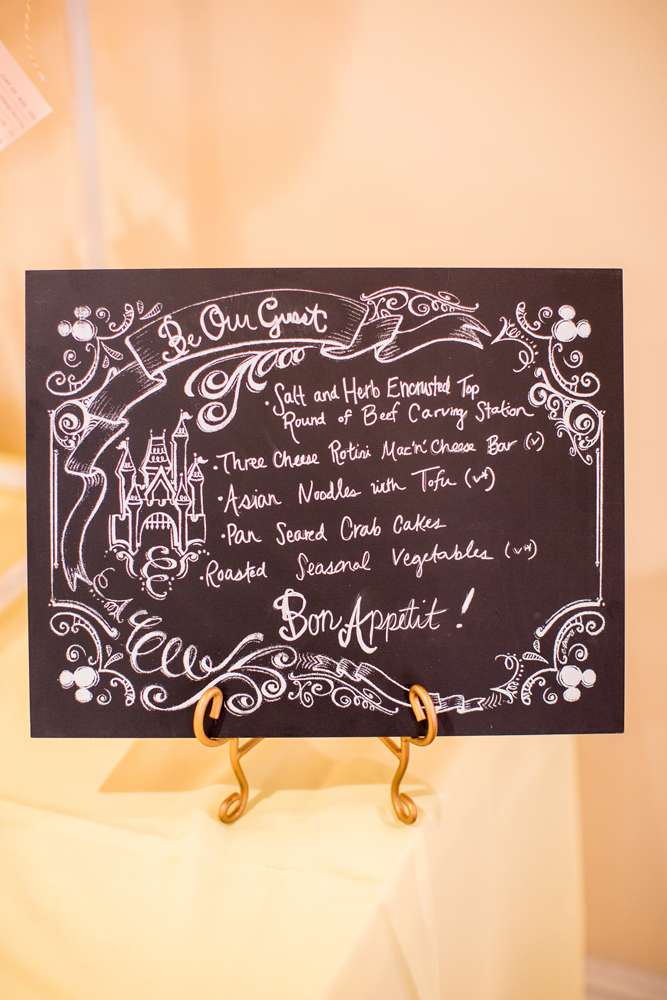 Be Our Guest
• Salt and Herb Encrusted Top
Round of Beef Carving Station
• Three Cheese Rotini Mac 'n' Cheese Bar (v)
• Asian Noodles with Tofu (v*)
• Pan Seared Crab Cakes
• Roasted Seasonal Vegetables (v*)
Bon Appetit!